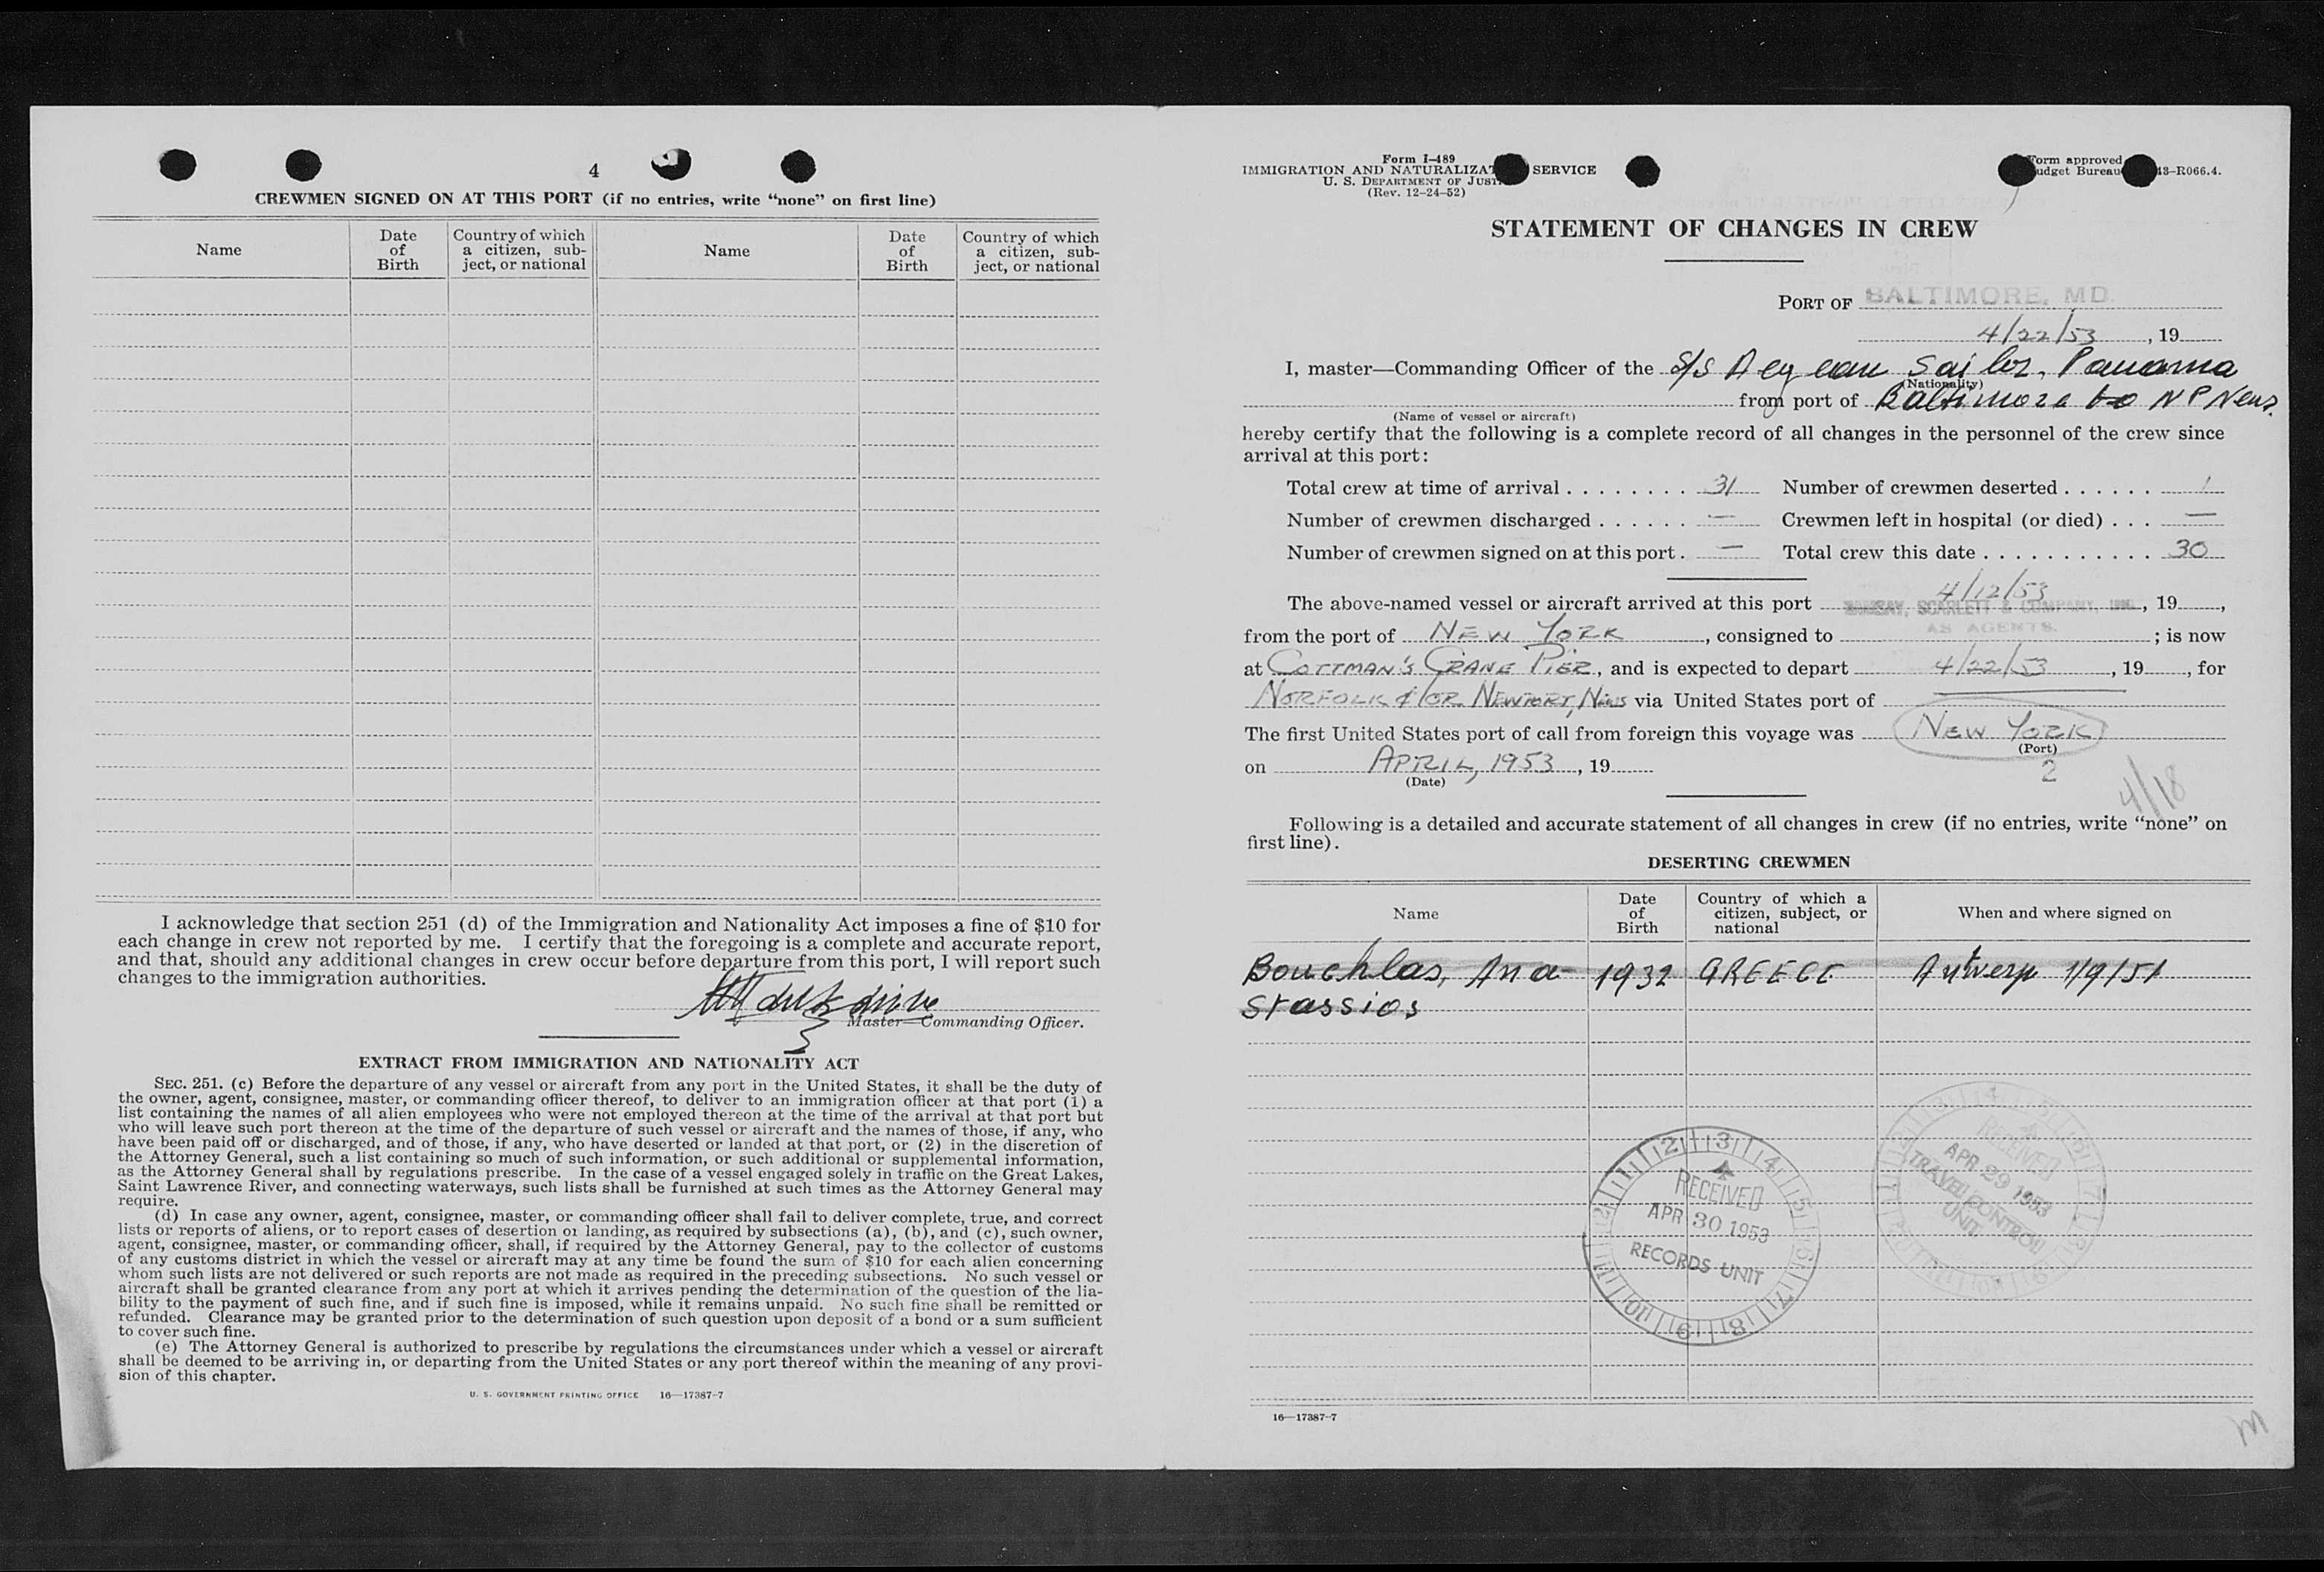 4
CREWMEN SIGNED ON AT THIS PORT (if no entries, write “none” on first line)
Name
Date of Birth
Country of which a citizen, subject, or national
Name
Date of Birth
Country of which a citizen, subject, or national
I acknowledge that section 251 (d) of the Immigration and Nationality Act imposes a fine of $10 for
each change in crew not reported by me. I certify that the foregoing is a complete and accurate report,
and that, should any additional changes in crew occur before departure from this port, I will report such
changes to the immigration authorities.
Master—Commanding Officer.
EXTRACT FROM IMMIGRATION AND NATIONALITY ACT
SEC. 251. (c) Before the departure of any vessel or aircraft from any port in the United States, it shall be the duty of
the owner, agent, consignee, master, or commanding officer thereof, to deliver to an immigration officer at that port (1) a
list containing the names of all alien employees who were not employed thereon at the time of the arrival at that port but
who will leave such port thereon at the time of the departure of such vessel or aircraft and the names of those, if any, who
have been paid off or discharged, and of those, if any, who have deserted or landed at that port, or (2) in the discretion of
the Attorney General, such a list containing so much of such information, or such additional or supplemental information,
as the Attorney General shall by regulations prescribe. In the case of a vessel engaged solely in traffic on the Great Lakes,
Saint Lawrence River, and connecting waterways, such lists shall be furnished at such times as the Attorney General may
require.
(d) In case any owner, agent, consignee, master, or commanding officer shall fail to deliver complete, true, and correct
lists or reports of aliens, or to report cases of desertion or landing, as required by subsections (a), (b), and (c), such owner,
agent, consignee, master, or commanding officer, shall, if required by the Attorney General, pay to the collector of customs
of any customs district in which the vessel or aircraft may at any time be found the sum of $10 for each alien concerning
whom such lists are not delivered or such reports are not made as required in the preceding subsections. No such vessel or
aircraft shall be granted clearance from any port at which it arrives pending the determination of the question of the lia-
bility to the payment of such fine, and if such fine is imposed, while it remains unpaid. No such fine shall be remitted or
refunded. Clearance may be granted prior to the determination of such question upon deposit of a bond or a sum sufficient
to cover such fine.
(e) The Attorney General is authorized to prescribe by regulations the circumstances under which a vessel or aircraft
shall be deemed to be arriving in, or departing from the United States or any port thereof within the meaning of any provi-
sion of this chapter.
U. S. GOVERNMENT PRINTING OFFICE 16—17387-7
Form I-489
IMMIGRATION AND NATURALIZAT SERVICE
U. S. DEPARTMENT OF JUST
(Rev. 12-24-52)
Form approved
udget Bureau 43-R066.4.
STATEMENT OF CHANGES IN CREW
PORT OF BALTIMORE, MD.
4/22/53, 19
I, master—Commanding Officer of the S/S Aegean Sailor, Panama
(Nationality)
from port of Baltimore to N P News.
(Name of vessel or aircraft)
hereby certify that the following is a complete record of all changes in the personnel of the crew since
arrival at this port:
Total crew at time of arrival . . . . . . . . 31 Number of crewmen deserted . . . . . . 1
Number of crewmen discharged . . . . . . — Crewmen left in hospital (or died) . . . —
Number of crewmen signed on at this port . — Total crew this date . . . . . . . . . . . 30
4/12/53
The above-named vessel or aircraft arrived at this port RAMSAY, SCARLETT & COMPANY, INC., 19 ,
AS AGENTS.
from the port of NEW YORK, consigned to ; is now
at COTTMAN'S CRANE PIER, and is expected to depart 4/22/53, 19 , for
NORFOLK &/OR NEWPORT, NEWS via United States port of
The first United States port of call from foreign this voyage was NEW YORK
(Port)
on APRIL, 1953, 19
(Date)
2
4/18
Following is a detailed and accurate statement of all changes in crew (if no entries, write “none” on
first line).
DESERTING CREWMEN
Name
Date of Birth
Country of which a citizen, subject, or national
When and where signed on
Bouchlas, Ana- 1932 GREECE Antwerp 1/9/51
stassios
RECEIVED
APR 30 1953
RECORDS UNIT
RECEIVED
APR 29 1953
TRAVEL CONTROL
UNIT
16—17387-7
M